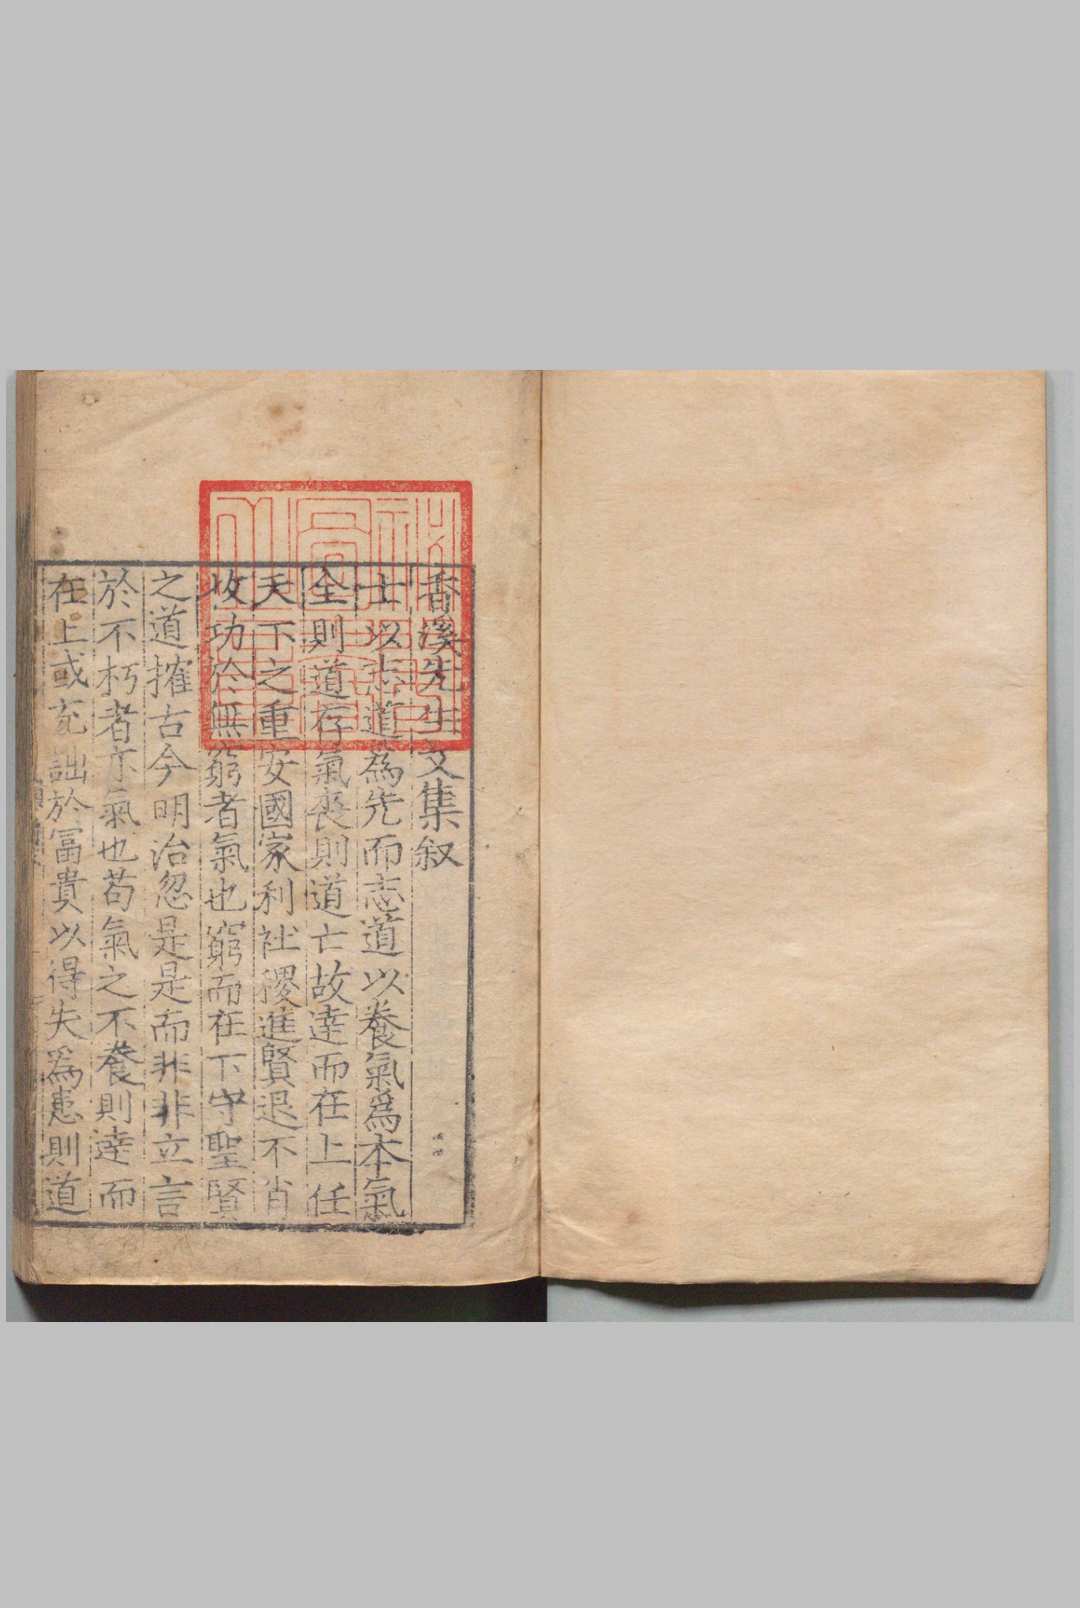 香溪先生文集叙
士以志道為先而志道以養氣爲本氣
全則道存氣喪則道亡故達而在上任
天下之重安國家利社稷進賢退不肖
收功於無窮者氣也窮而在下守聖賢
之道搉古今明治忽是是而非非立言
於不朽者亦氣也苟氣之不養則達而
在上或充詘於冨貴以得失爲患則道